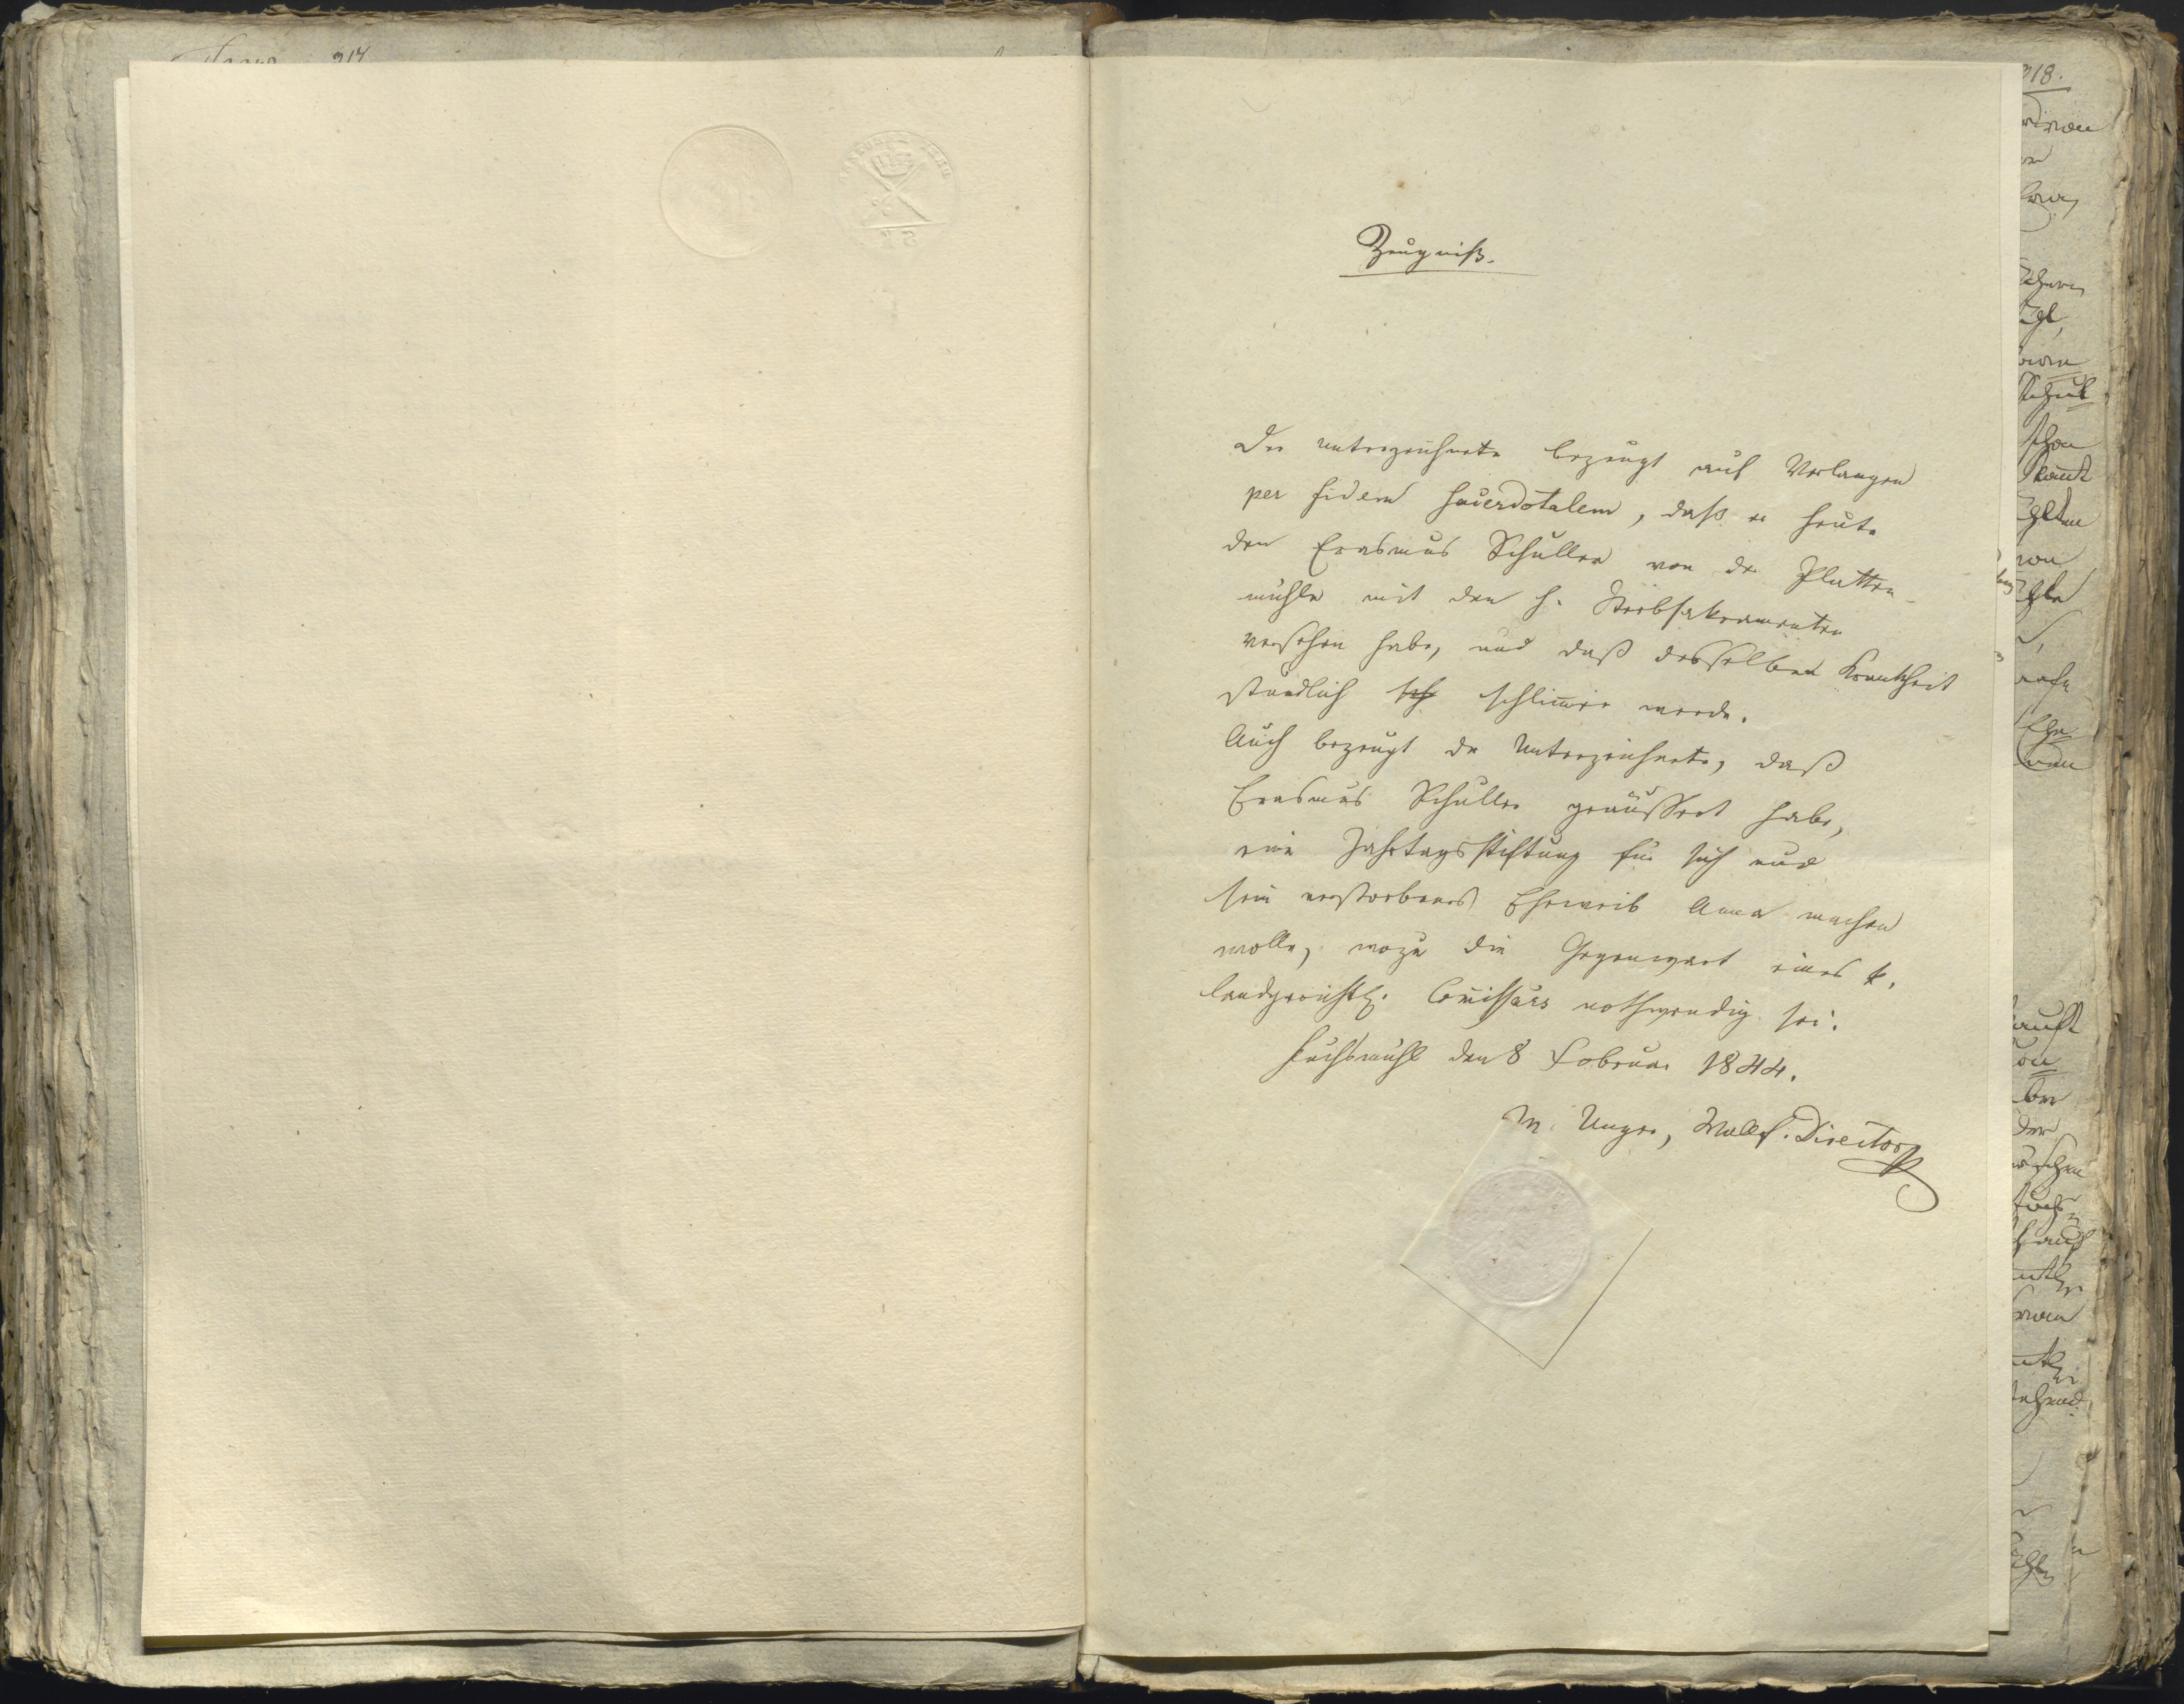 Zeugniß.
Der unterzeichnete bezeugt auf Verlangen
per fidem sacerdotalem, daß er heute
den Erasmus Schuller von der Platten-
mühle mit den h. Sterbsakramenten
versehen habe, und daß desselben Krankheit
stündlich sch schlim̅er werde.
Auch bezeugt der Unterzeichnete, daß
Erasmus Schuller geäussert habe,
eine Jahrtagsstiftung für sich und
sein verstorbenes Eheweib Anna machen
wolle, wozu die Gegenwart eines k.
landgerichtl. Com̅issärs nothwendig sei.
Fuchsmühl den 8 Februar 1844.
M. Unger, Wallf. Director
318.